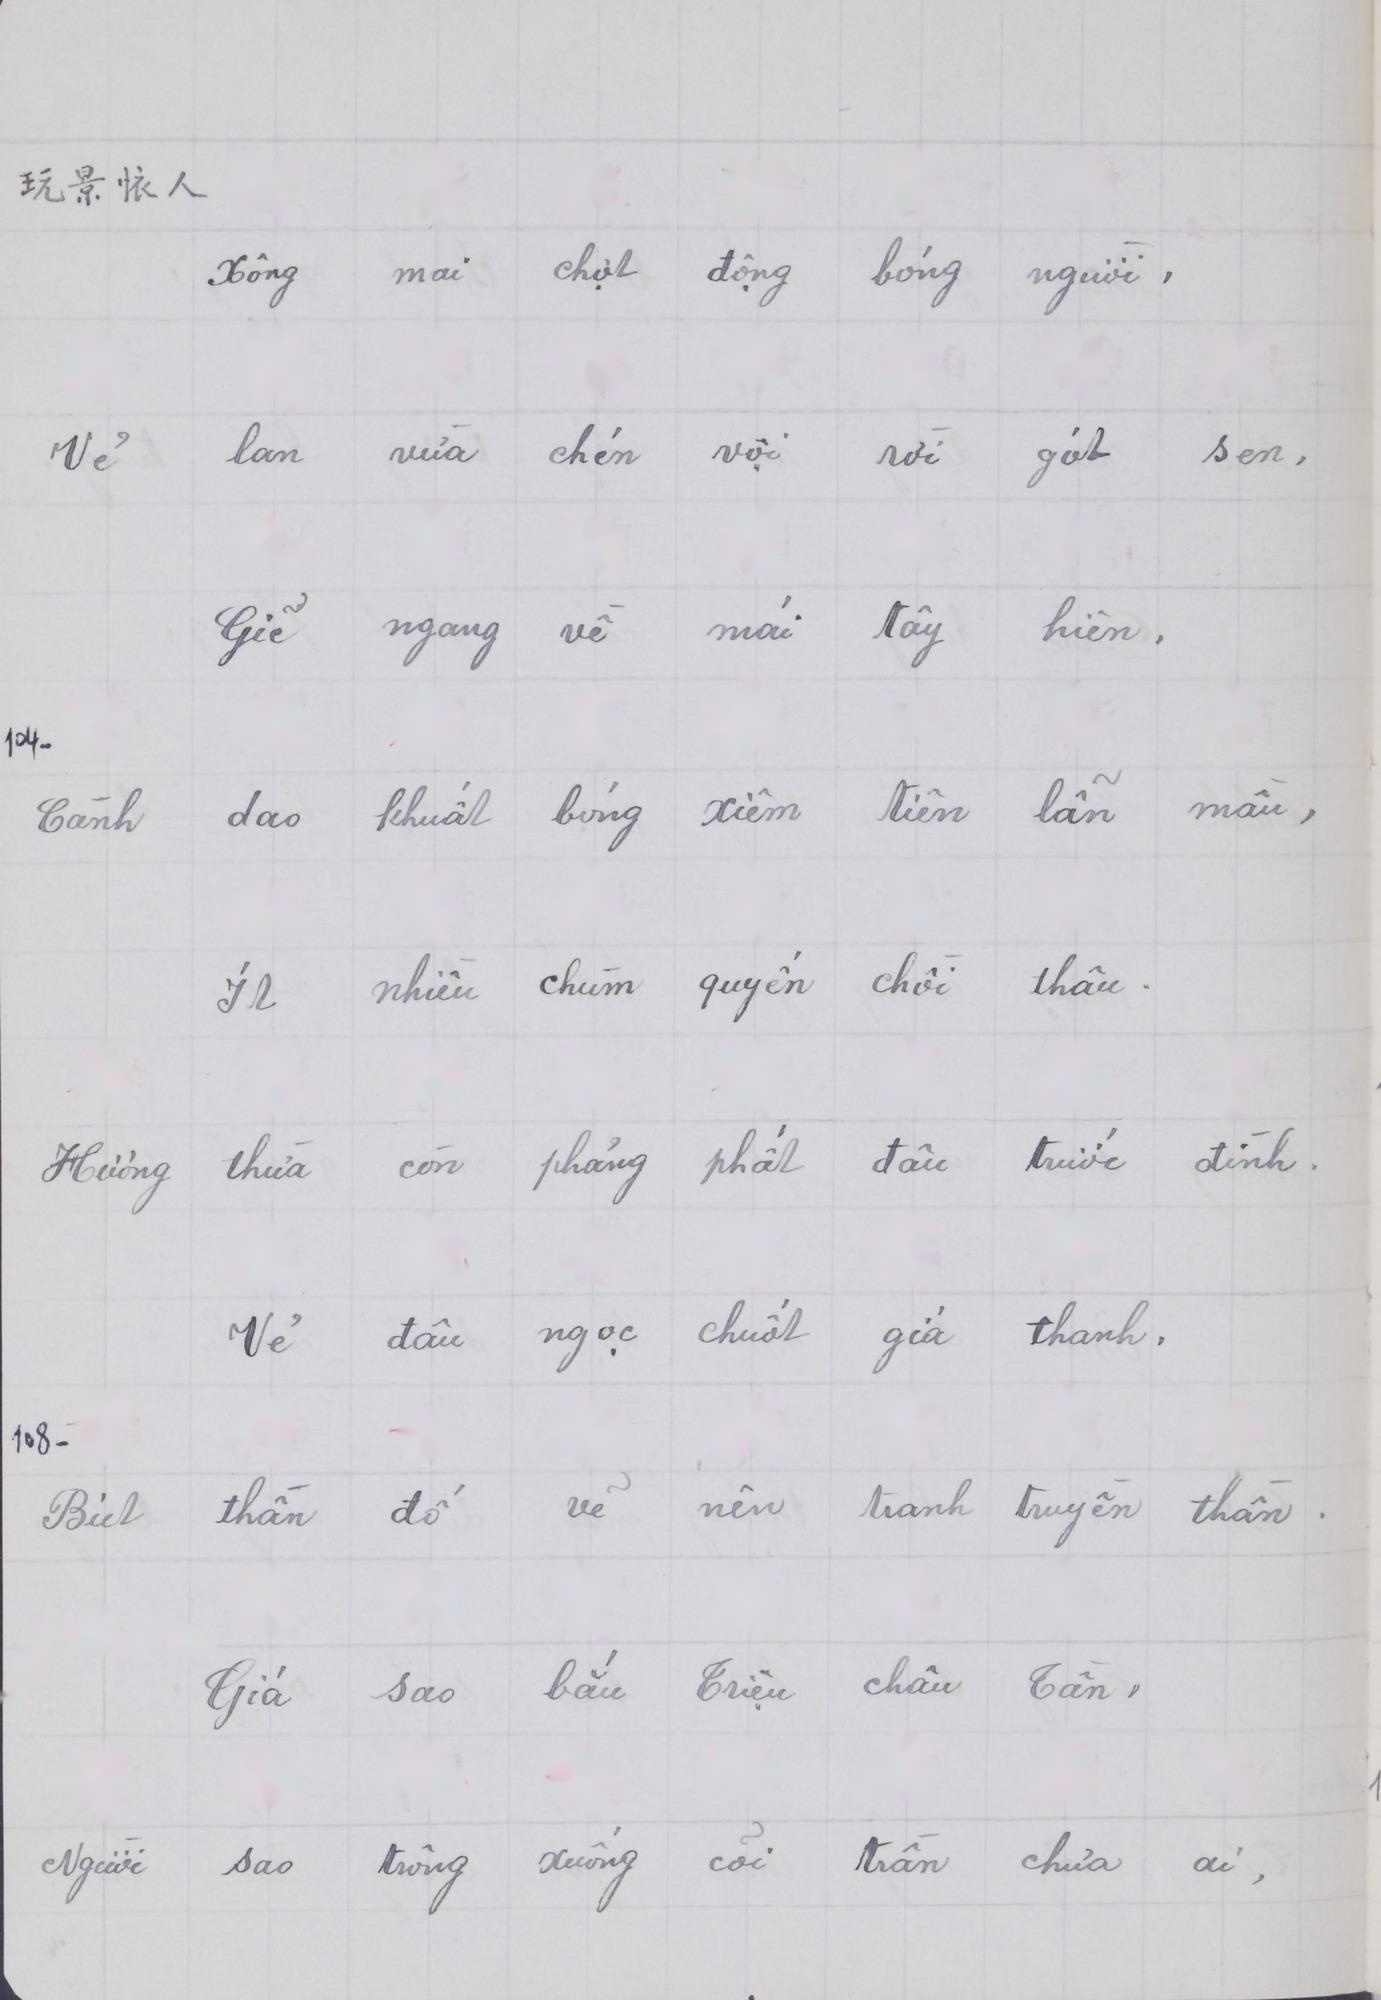 玩景懷人
Xông mai chợt động bóng người,
Vẻ lan vừa chén vội rời gót sen,
Giẽ ngang về mái tây hiên,
104-
Cành dao khuất bóng xiêm tiên lẫn mầu,
Ít nhiều chùm quyến chồi thâu.
Hương thừa còn phảng phất đâu trước đình.
Vẻ đâu ngọc chuốt giá thanh,
108-
Biết thần đố vẽ nên tranh truyền thần.
Giá sao bấu Triệu châu Tần,
Người sao trông xuống cõi trần chưa ai,